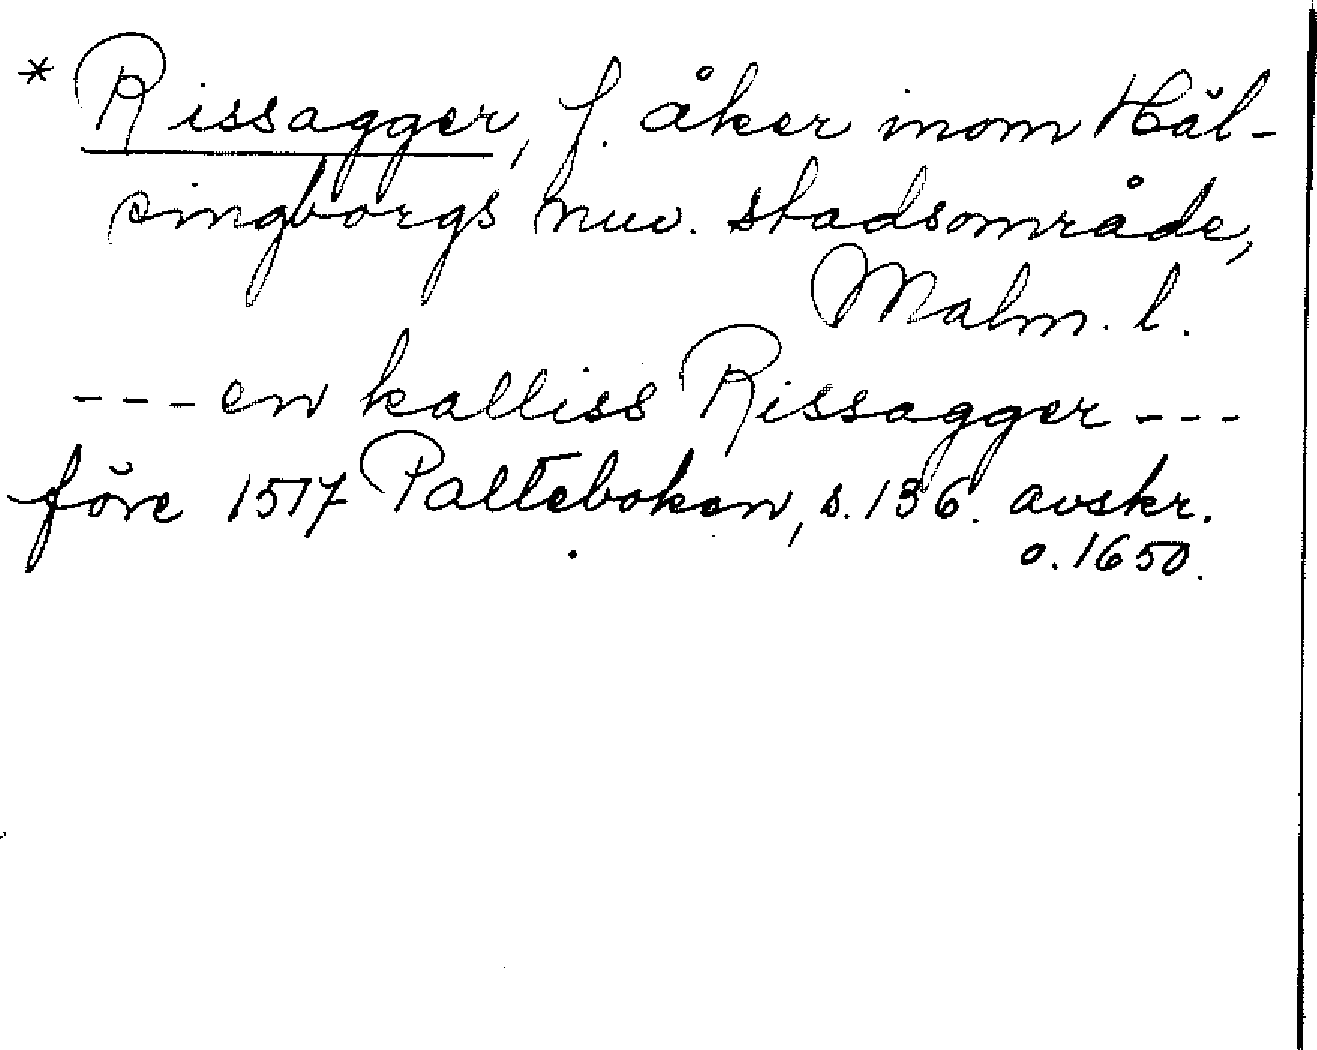 * Rissagger, f. åker inom Häl-
singborgs nuv. stadsområde,
Malm. l.
---en kalliss Rissagger---
före 1517 Palteboken, s. 136. avskr.
o. 1650.